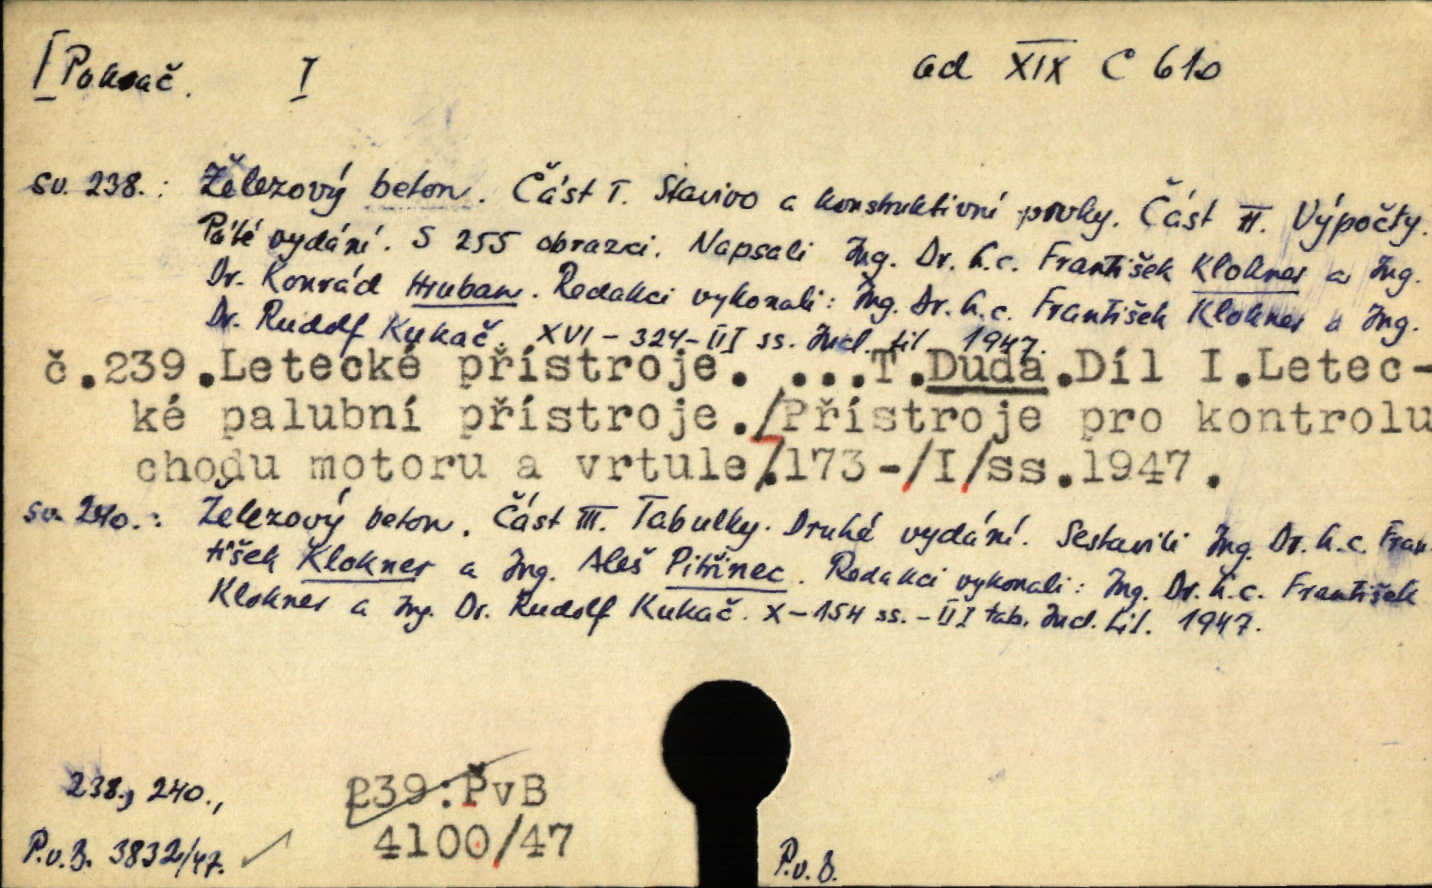 Pokrač. I ad XIX C 610
sv. 238.: Železový beton. Část I. Stavivo a konstruktivní prvky. Část II. Výpočty.
Páté vydání. S 255 obrazci. Napsali Ing. Dr. h.c. František Klokner a Ing.
Dr. Konrád Hruban. Redakci vykonali: Ing. Dr. h.c. František Klokner a Ing.
Dr. Rudolf Kukač. XVI - 324 - III ss. Incl. tit. 1947.
č.239.Letecké přístroje. ...T.Duda.Díl I.Letec-
ké palubní přístroje./Přístroje pro kontrolu
chodu motoru a vrtule/.173-/I/ss.1947.
sv. 240.: Železový beton. Část III. Tabulky. Druhé vydání. Sestavili Ing. Dr. h.c. Fran-
tišek Klokner a Ing. Aleš Pitřinec. Redakci vykonali: Ing. Dr. h.c. František
Klokner a Ing. Dr. Rudolf Kukač. X - 154 ss. - III tab. Incl. tit. 1947.
238., 240.,
P.v.B. 3832/47.
239:PvB
4100/47
P.v.B.